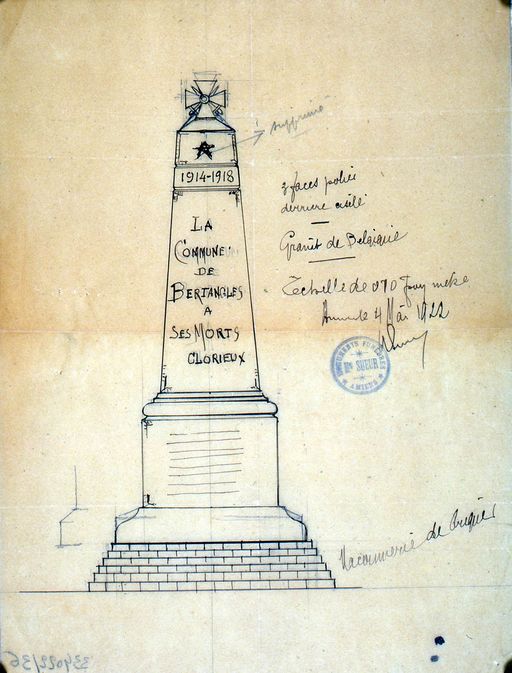 supprimé
1914-1918
LA
COMMUNE
DE
BERTANGLES
A
SES MORTS
GLORIEUX
3 faces polies
derrière ciselé
Granit de Belgique
Echelle de 0,10 pour mètre
4 Mai 1922
MONUMENTS FUNÈBRES
SUEUR
AMIENS
Maçonnerie de briques